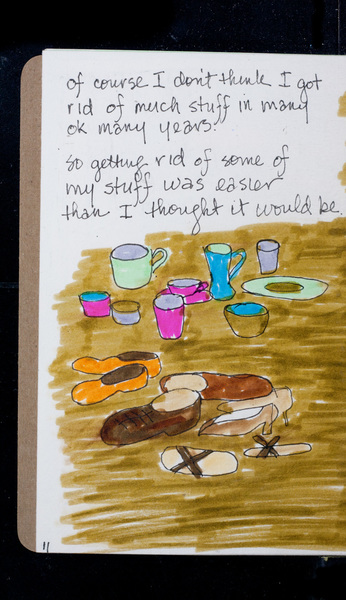 of course I don't think I got
rid of much stuff in many
ok many years.
So getting rid of some of
my stuff was easier
than I thought it would be.
11